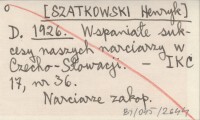 [SZATKOWSKI Henryk]
D. 1926. Wspaniałe suk-
cesy naszych narciarzy w
Czecho-Słowacji. - IKC
17, nr 36.
Narciarze zakop.